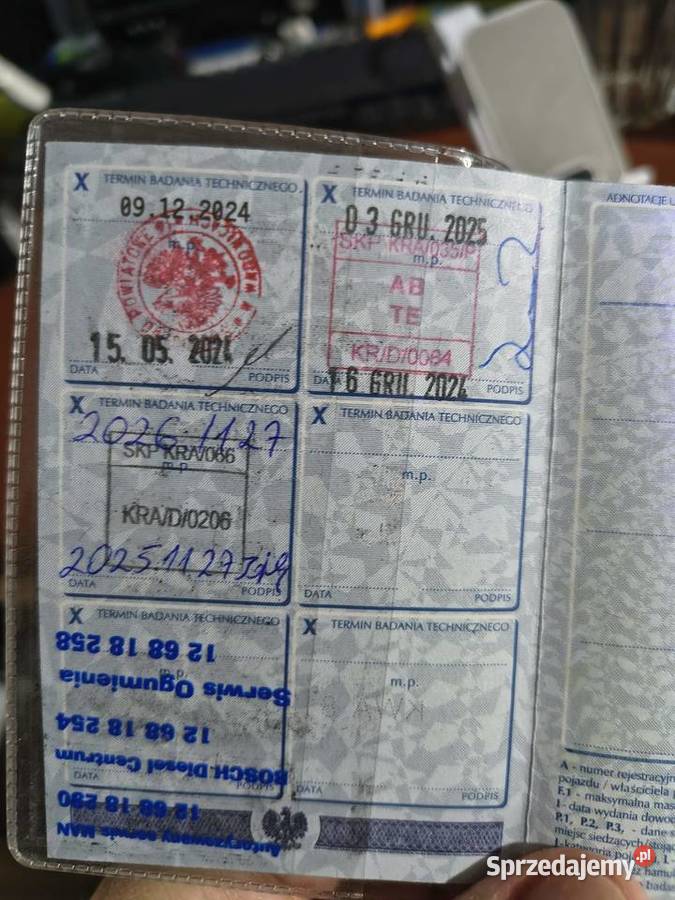 X TERMIN BADANIA TECHNICZNEGO
09.12.2024
m.p.
15. 05. 2024
DATA PODPIS
X TERMIN BADANIA TECHNICZNEGO
03 GRU. 2025
SKP KRA/035/P
m.p.
AB
TE
KR/D/0064
16 GRU. 2024
DATA PODPIS
X TERMIN BADANIA TECHNICZNEGO
2026.11.27
SKP KRA/066
m.p.
KRA/D/0206
20251127
DATA PODPIS
X TERMIN BADANIA TECHNICZNEGO
m.p.
DATA PODPIS
X TERMIN BADANIA TECHNICZNEGO
m.p.
DATA
Autoryzowany serwis MAN
12 68 18 290
BOSCH Diesel Centrum
12 68 18 254
Serwis Ogumienia
12 68 18 258
X TERMIN BADANIA TECHNICZNEGO
m.p.
DATA PODPIS
ADNOTACJE
A - numer rejestracyjn
pojazdu / właściciela
F.1 - maksymalna mas
I - data wydania dowo
P.1, P.2, P.3, - dane s
miejsc siedzących/stoją
Sprzedajemy.pl